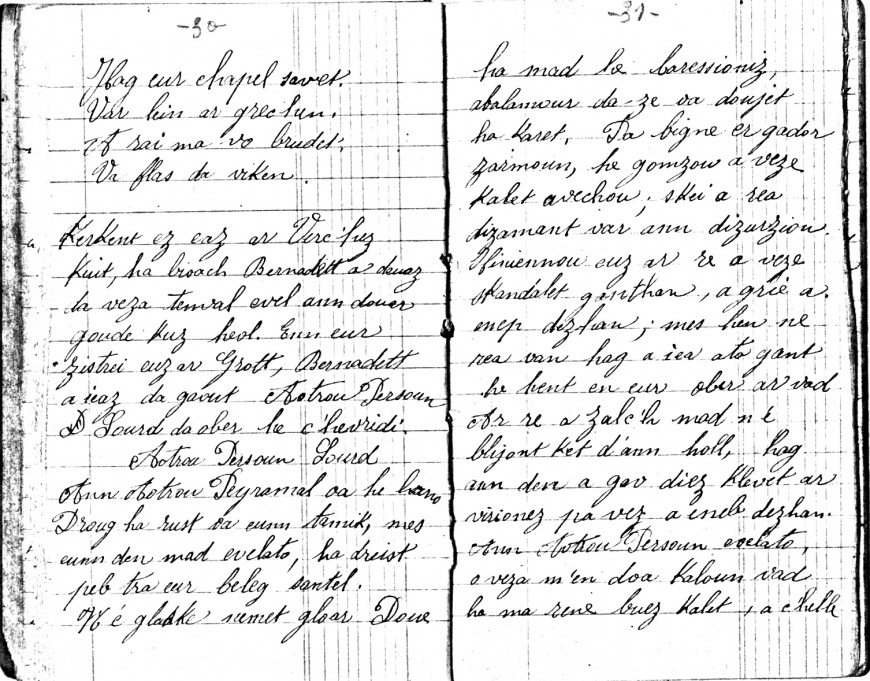 -30-
Hag eur chapel savet.
Var lein ar grec'hen.
A rai ma vo brudet,
Va flas da viken.
Kerkent ez eaz ar Verc'hez
Kuit, ha bioach Bernadett a deuaz
da veza tenval evel ann douar
goude Kuz heol. Enn eur
zistrei euz ar Grott, Bernadett
a ieaz da gaout Aotrou Persoun
Lourd da ober he c'hevridi.
Aotrou Persoun Lourd
Ann Aotrou Peyramal oa he hano
Droug ha rust oa eunn tamik, mes
eunn den mad evelato, ha dreist
peb tra eur beleg santel.
N'é glaske nemet gloar Doue
-31-
ha mad he baressioniz,
abalamour da-ze oa doujet
ha Karet. Pa bigne er gador
zarmoun, he gomzou a veze
Kalet avechou; skei a rea
dizamant var ann dizurziou.
Hiniennou euz ar re a veze
skandalet ganthan, a grie a.
enep dezhan; mes hen ne
rea van hag a iea ato gant
he hent en eur ober ar vad
Ar re a zalc'h mad n'é
blijont Ket d'ann holl, hag
ann den a gav diez Klevet ar
virionez pa vez a eneb dezhan.
Ann Aotrou Persoun evelato,
o veza m'en doa Kaloun vad
ha ma rene buez Kalet, a c'helle